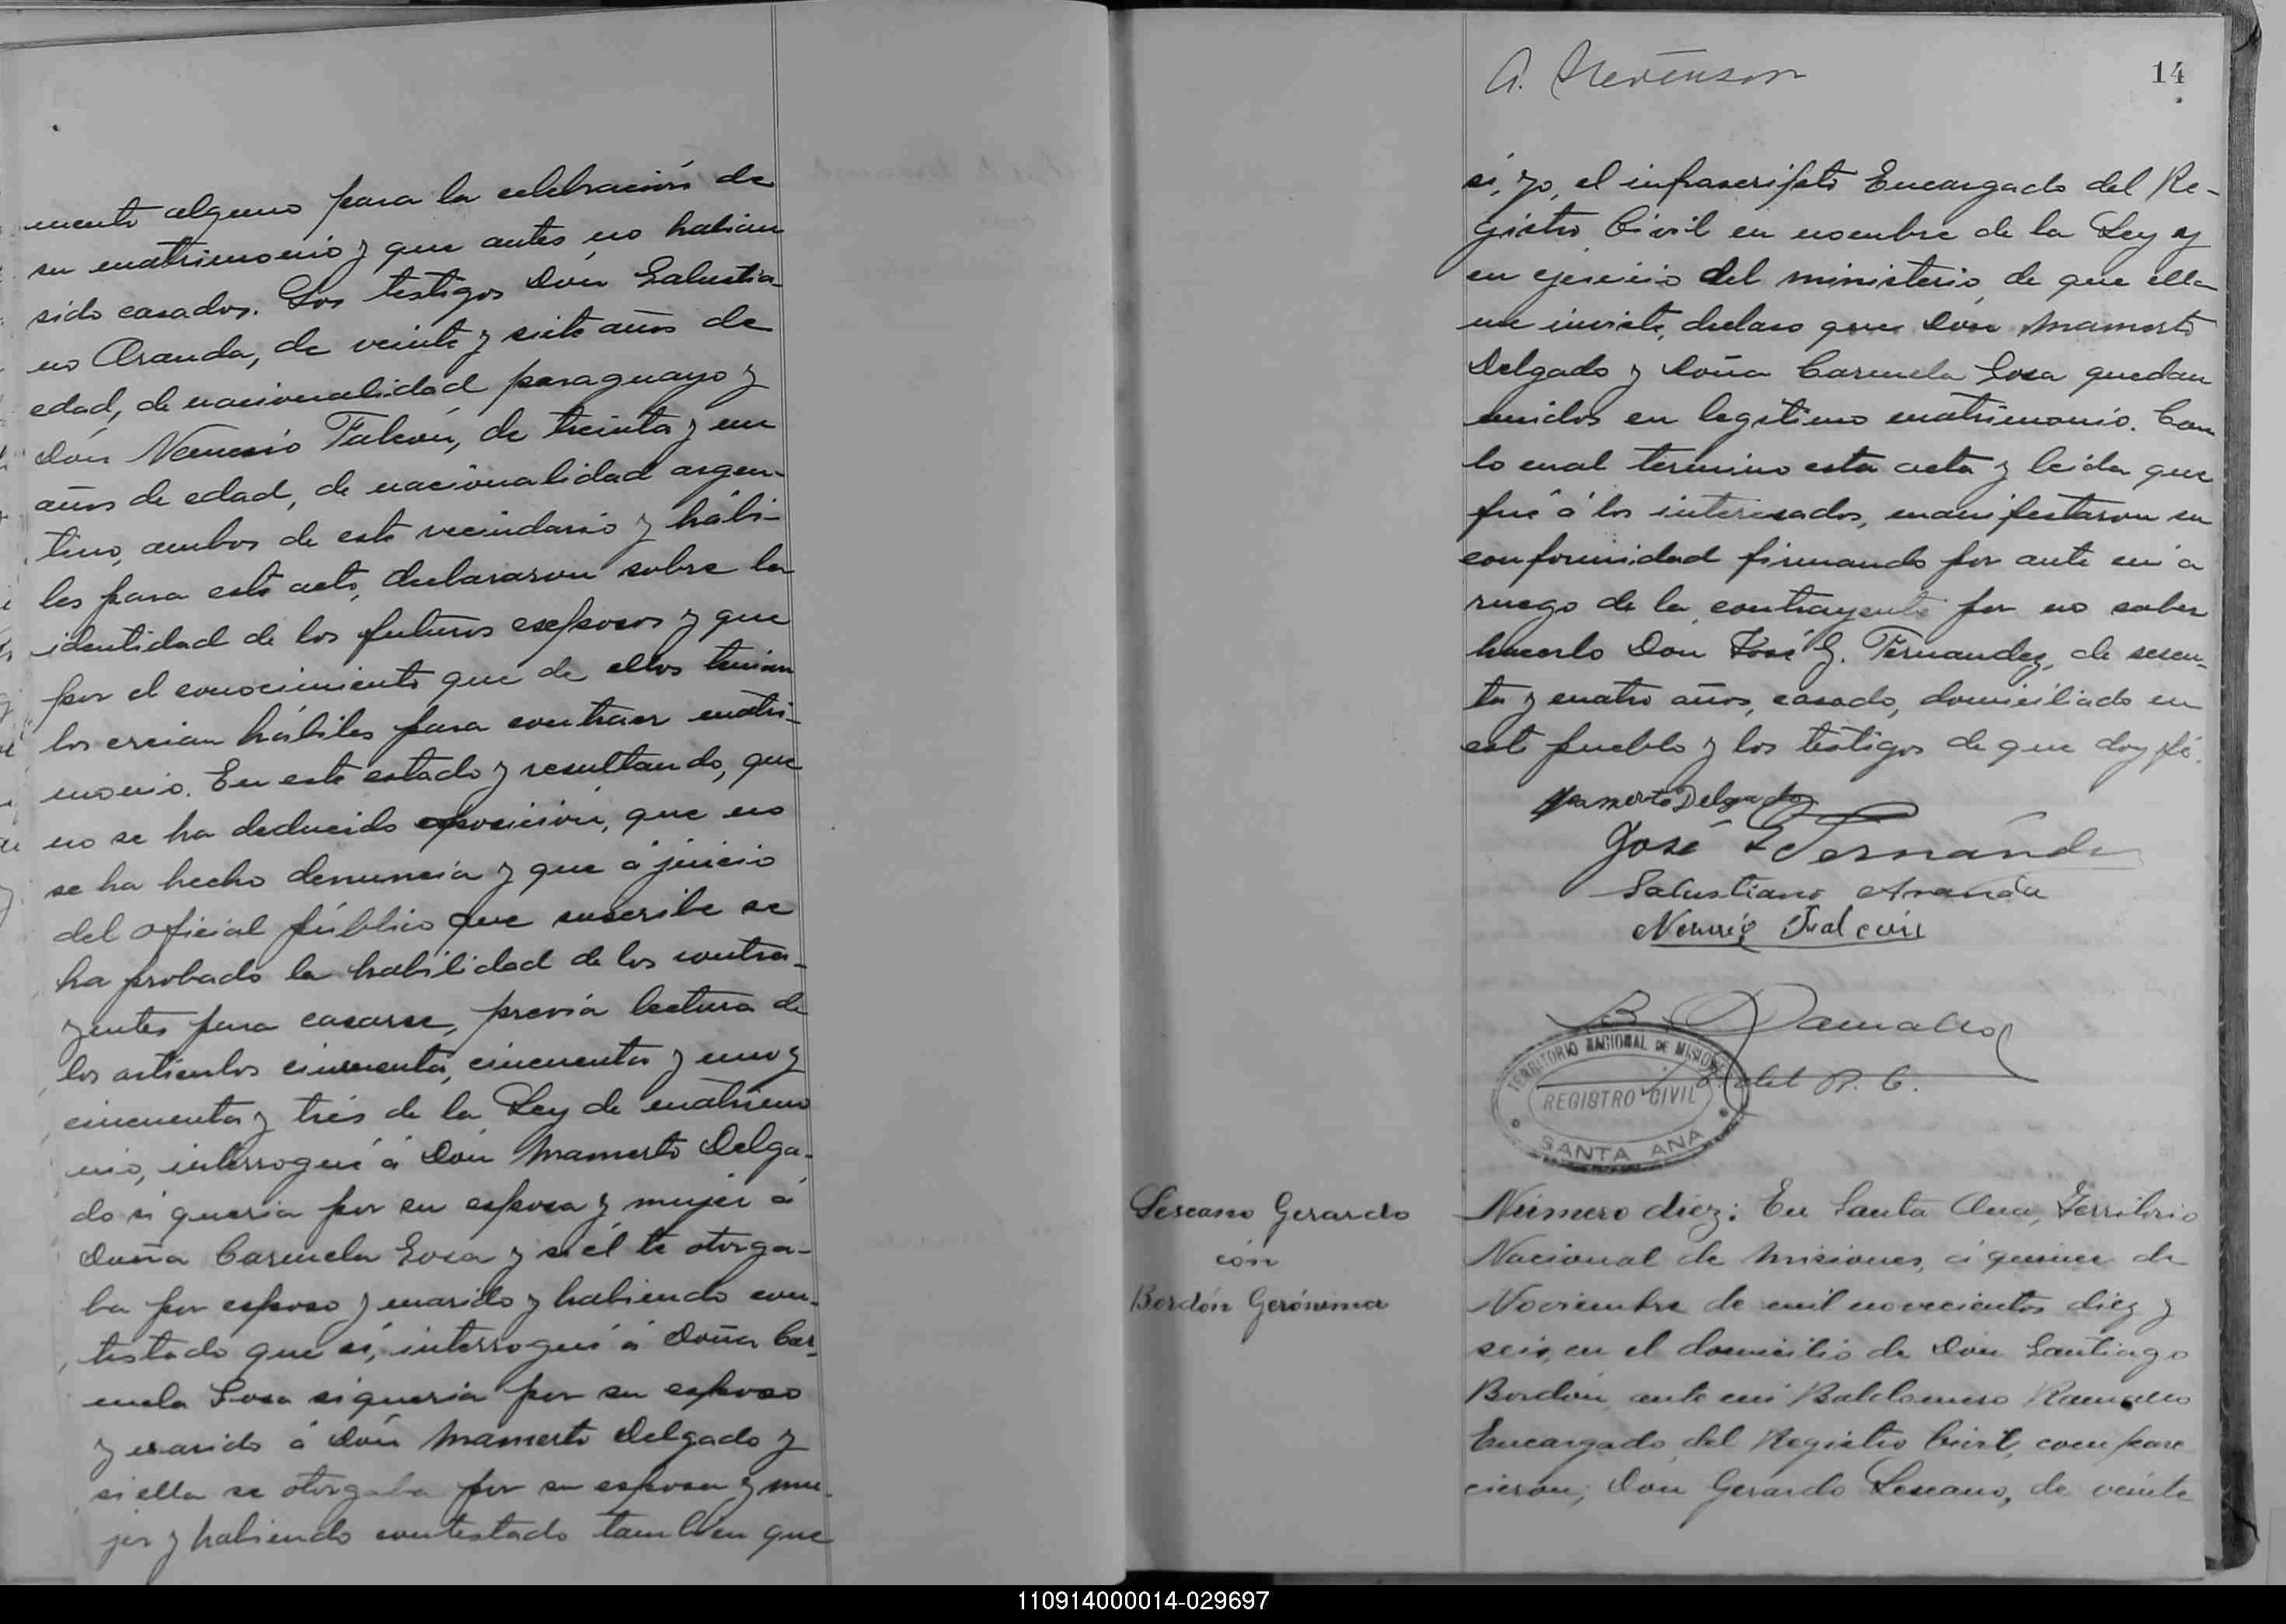 mento alguno para la celebración de
su matrimonio y que antes no habian
sido casados. Los testigos Don Salustia-
no Aranda, de veinte y siete años de
edad, de nacionalidad paraguayo y
Don Nemesio Falcón, de treinta y un
años de edad, de nacionalidad argen-
tino, ambos de este vecindario y hábi-
les para este acto, declararon sobre la
identidad de los futuros esposos y que
por el conocimiento que de ellos tenian
los creian hábiles para contraer matri-
monio. En este estado y resultando, que
no se ha deducido oposición, que no
se ha hecho denuncia y que á juicio
del oficial público que suscribe se
ha probado la habilidad de los contra-
yentes para casarse, previa lectura de
los articulos cincuenta, cincuenta y uno y
cincuenta y tres de la Ley de matrimo
nio, interrogué á Don Mamerto Delga-
do si queria por su esposa y mujer á
Doña Carmela Sosa y si él le otorga-
ba por esposo y marido y habiendo con-
testado que sí, interrogué á Doña Car-
mela Sosa si queria por su esposo
y marido á Don Mamerto Delgado y
si ella se otorgaba por su esposa y mu-
jer y habiendo contestado tambien que
A. Stevenson
14
si, yo, el infrascripto Encargado del Re-
gistro Civil en nombre de la Ley y
en ejercicio del ministerio de que ella
me inviste, declaro que Don Mamerto
Delgado y Doña Carmela Sosa quedan
unidos en legitimo matrimonio. Con
lo cual termino esta acta y leida que
fué á los interesados, manifestaron su
conformidad firmando por ante mi á
ruego de la contrayente por no saber
hacerlo Don José G. Fernandez, de sesen-
ta y cuatro años, casado, domiciliado en
este pueblo y los testigos de que doy fé.
Mamerto Delgado
José Fernandez
Salustiano Aranda
Nemesio Falcón
B. Ramallo
del R. C.
TERRITORIO NACIONAL DE MISIONES
REGISTRO CIVIL
SANTA ANA
Lescano Gerardo
con
Bordón Gerónima
Número diez: En Santa Ana, Territorio
Nacional de Misiones, á quince de
Noviembre de mil novecientos diez y
seis, en el domicilio de Don Santiago
Bordón, ante mi Baldomero Ramallo
Encargado del Registro Civil, compare
cieron; Don Gerardo Lescano, de veinte
110914000014-029697